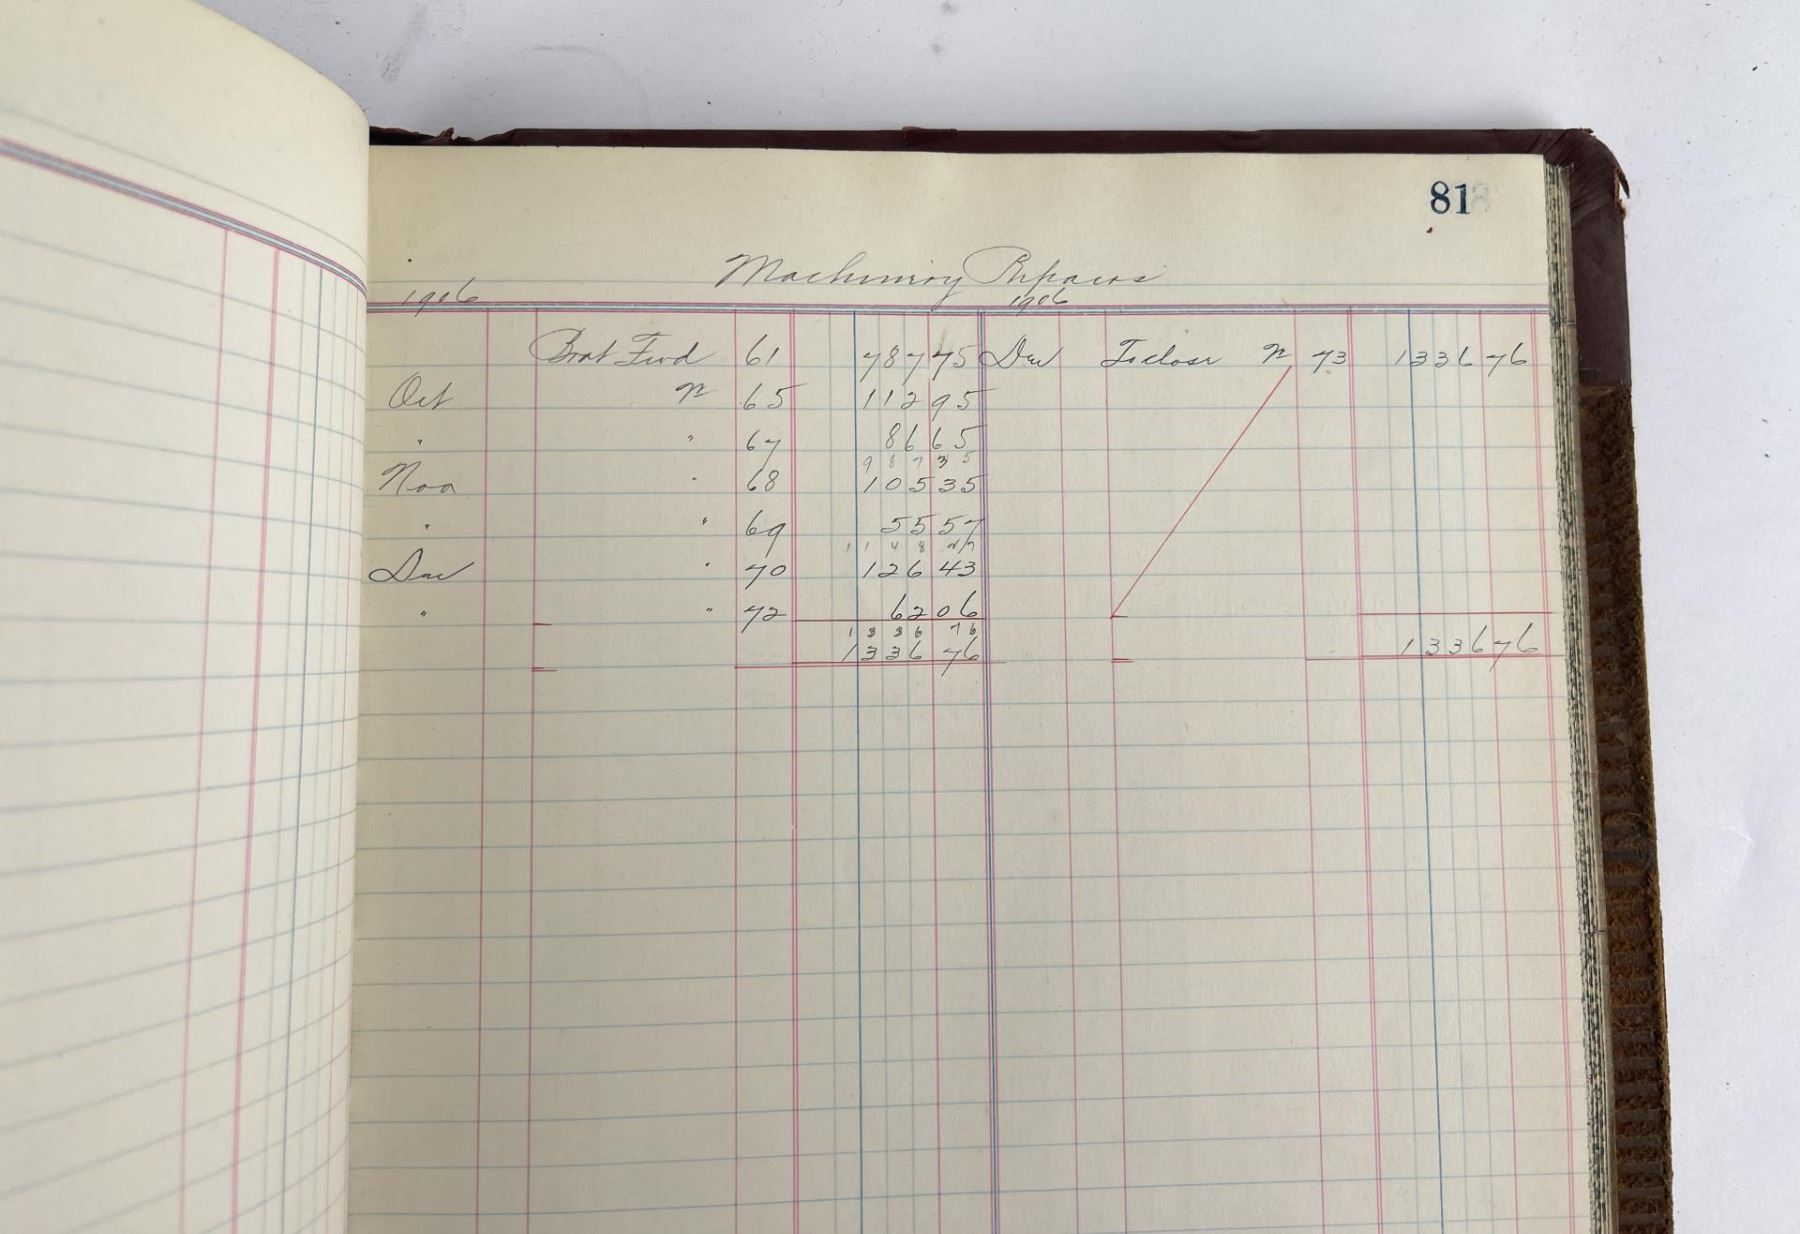 81
Machinery Repairs
1906 1906
Brot Fwd 61 787 75 Dec To close 73 1336 76
Oct 65 112 95
" " 67 86 65
987 35
Nov " 68 105 35
" " 69 55 57
1148 27
Dec " 70 126 43
" " 72 62 06
1336 76
1336 76 1336 76